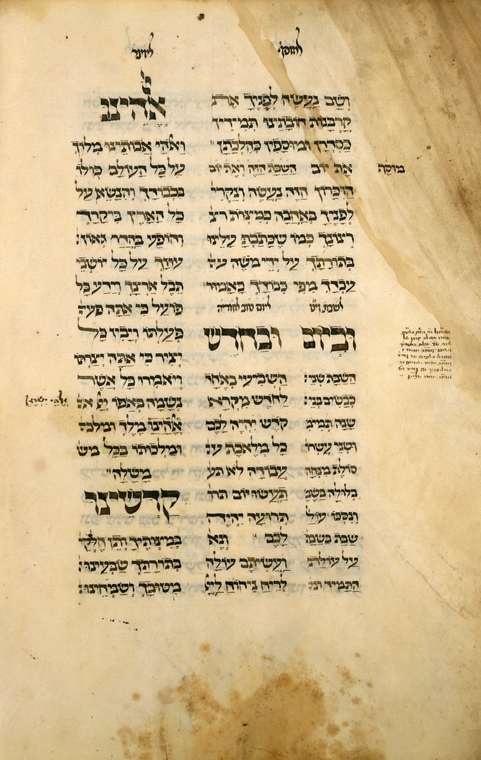 למוסף
ושם נעשה לפניך את
קרבנות חובתינו תמידין
כסדרן ומוספין כהלכתן
את יום השבת הזה ואת יום
מוסף
הזכרון הזה נעשה ונקריב
לפניך באהבה כמצות רצ
רצונך כמו שכתבת עלינו
בתורתך על ידי משה עב
עבדך מפי כבודך כאמור
וביום ובחדש
השבת שני
כבשים בני
שנה תמימים
ושני עשרו
סולת מנחה
בלולה בשמן
ונסכו עול
שבת בשבת
על עולת
התמיד ונ
השביעי באחד
לחדש מקרא
קדש יהיה לכם
כל מלאכת עב
עבודה לא תע
תעשו יום תרו
תרועה יהיה
לכם
ועשיתם עולה
לריח ניחוח ליי
אלהינו
ואלהי אבותינו מלוך
על כל העולם כולו
בכבודך והנשא על
כל הארץ ביקרך
והופע בהדר גאון
עוזך על כל יושבי
תבל ארצך וידע כל
פועל כי אתה פעל
פעלתו ויבין כל
יציר כי אתה יצרתו
ויאמרו כל אשר
נשמה באפו יי א
אלהי ישראל
אלהינו מלך ומלכ
ומלכותו בכל מש
משלה
קדשינו
במצותיך ותן חלק
בתורתך שבעינו
מטובך ושמחינו